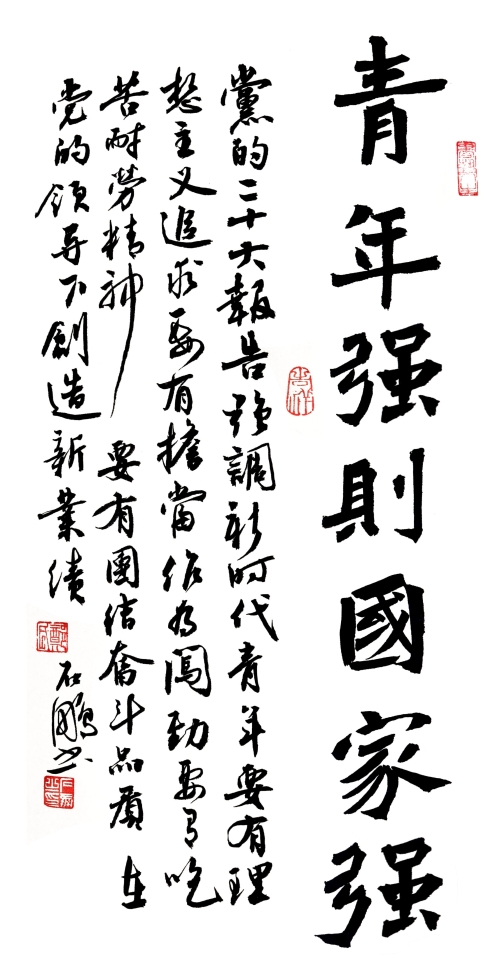 青年强則國家强
黨的二十大報告强調新时代青年要有理
想主义追求要有擔當作为闖劲要有吃
苦耐勞精神 要有團结奮斗品质 在
党的领导下創造新業绩
石鵬书